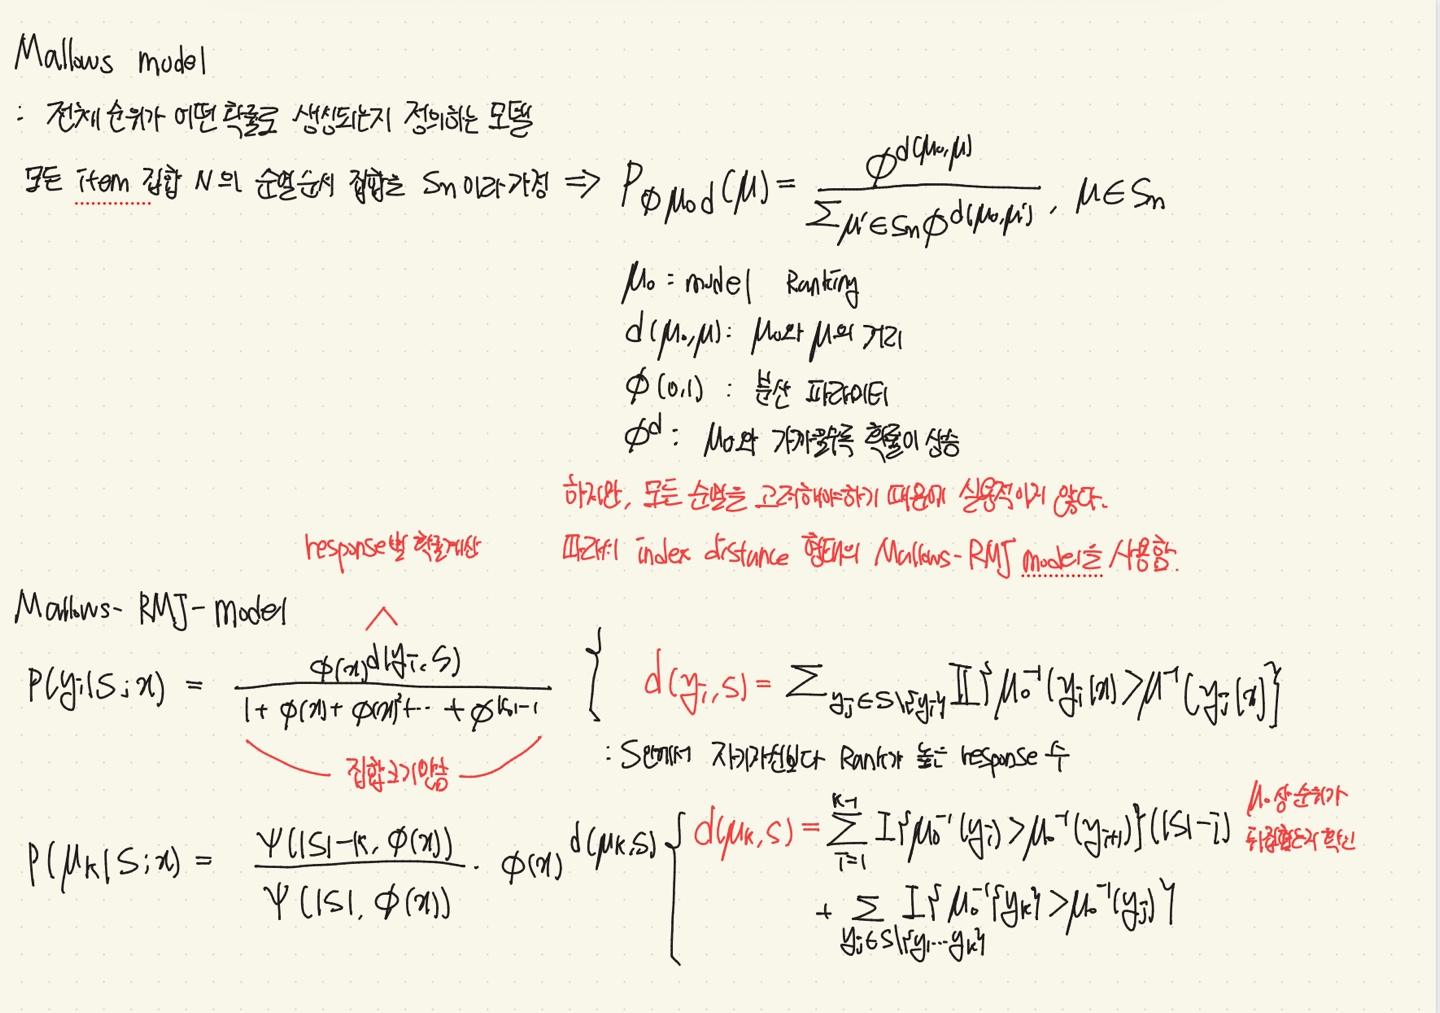 Mallows model
: 전체 순위가 어떤 확률로 생성되는지 정의하는 모델
모든 item 집합 N의 순열순서 집합을 Sn이라 가정 => P_{ϕ μ₀ d}(μ) = ϕ^{d(μ₀,μ)} / Σ_{μ'∈Sn} ϕ^{d(μ₀,μ')} , μ∈Sn
μ₀ : model Ranking
d(μ₀,μ) : μ₀와 μ의 거리
ϕ(0,1) : 분산 파라미터
ϕ^d : μ₀와 가까울수록 확률이 상승
하지만, 모든 순열을 고려해야하기 때문에 실용적이지 않다.
따라서 index distance 형태의 Mallows-RMJ model을 사용함.
response별 확률계산
Mallows-RMJ-model
P(y_i|S;x) = ϕ(x)^{d(y_i,S)} / 1+ϕ(x)+ϕ(x)²+…+ϕ^{|S|-1}
d(y_i,S) = Σ_{y_j∈S\{y_i}} I{μ₀⁻¹(y_i|x)>μ⁻¹(y_j|x)}
: S안에서 자기자신보다 Rank가 높은 response 수
집합크기만큼
P(μ_k|S;x) = ψ(|S|-k, ϕ(x)) / ψ(|S|, ϕ(x)) · ϕ(x)^{d(μ_k,S)}
d(μ_k,S) = Σ_{i=1}^{k-1} I{μ₀⁻¹(y_i)>μ₀⁻¹(y_{i+1})}(|S|-i)
+ Σ_{y_j∈S\{y_1…y_k}} I{μ₀⁻¹{y_k}>μ₀⁻¹(y_j)}
μ₀상 순위가
뒤집혔는지 확인